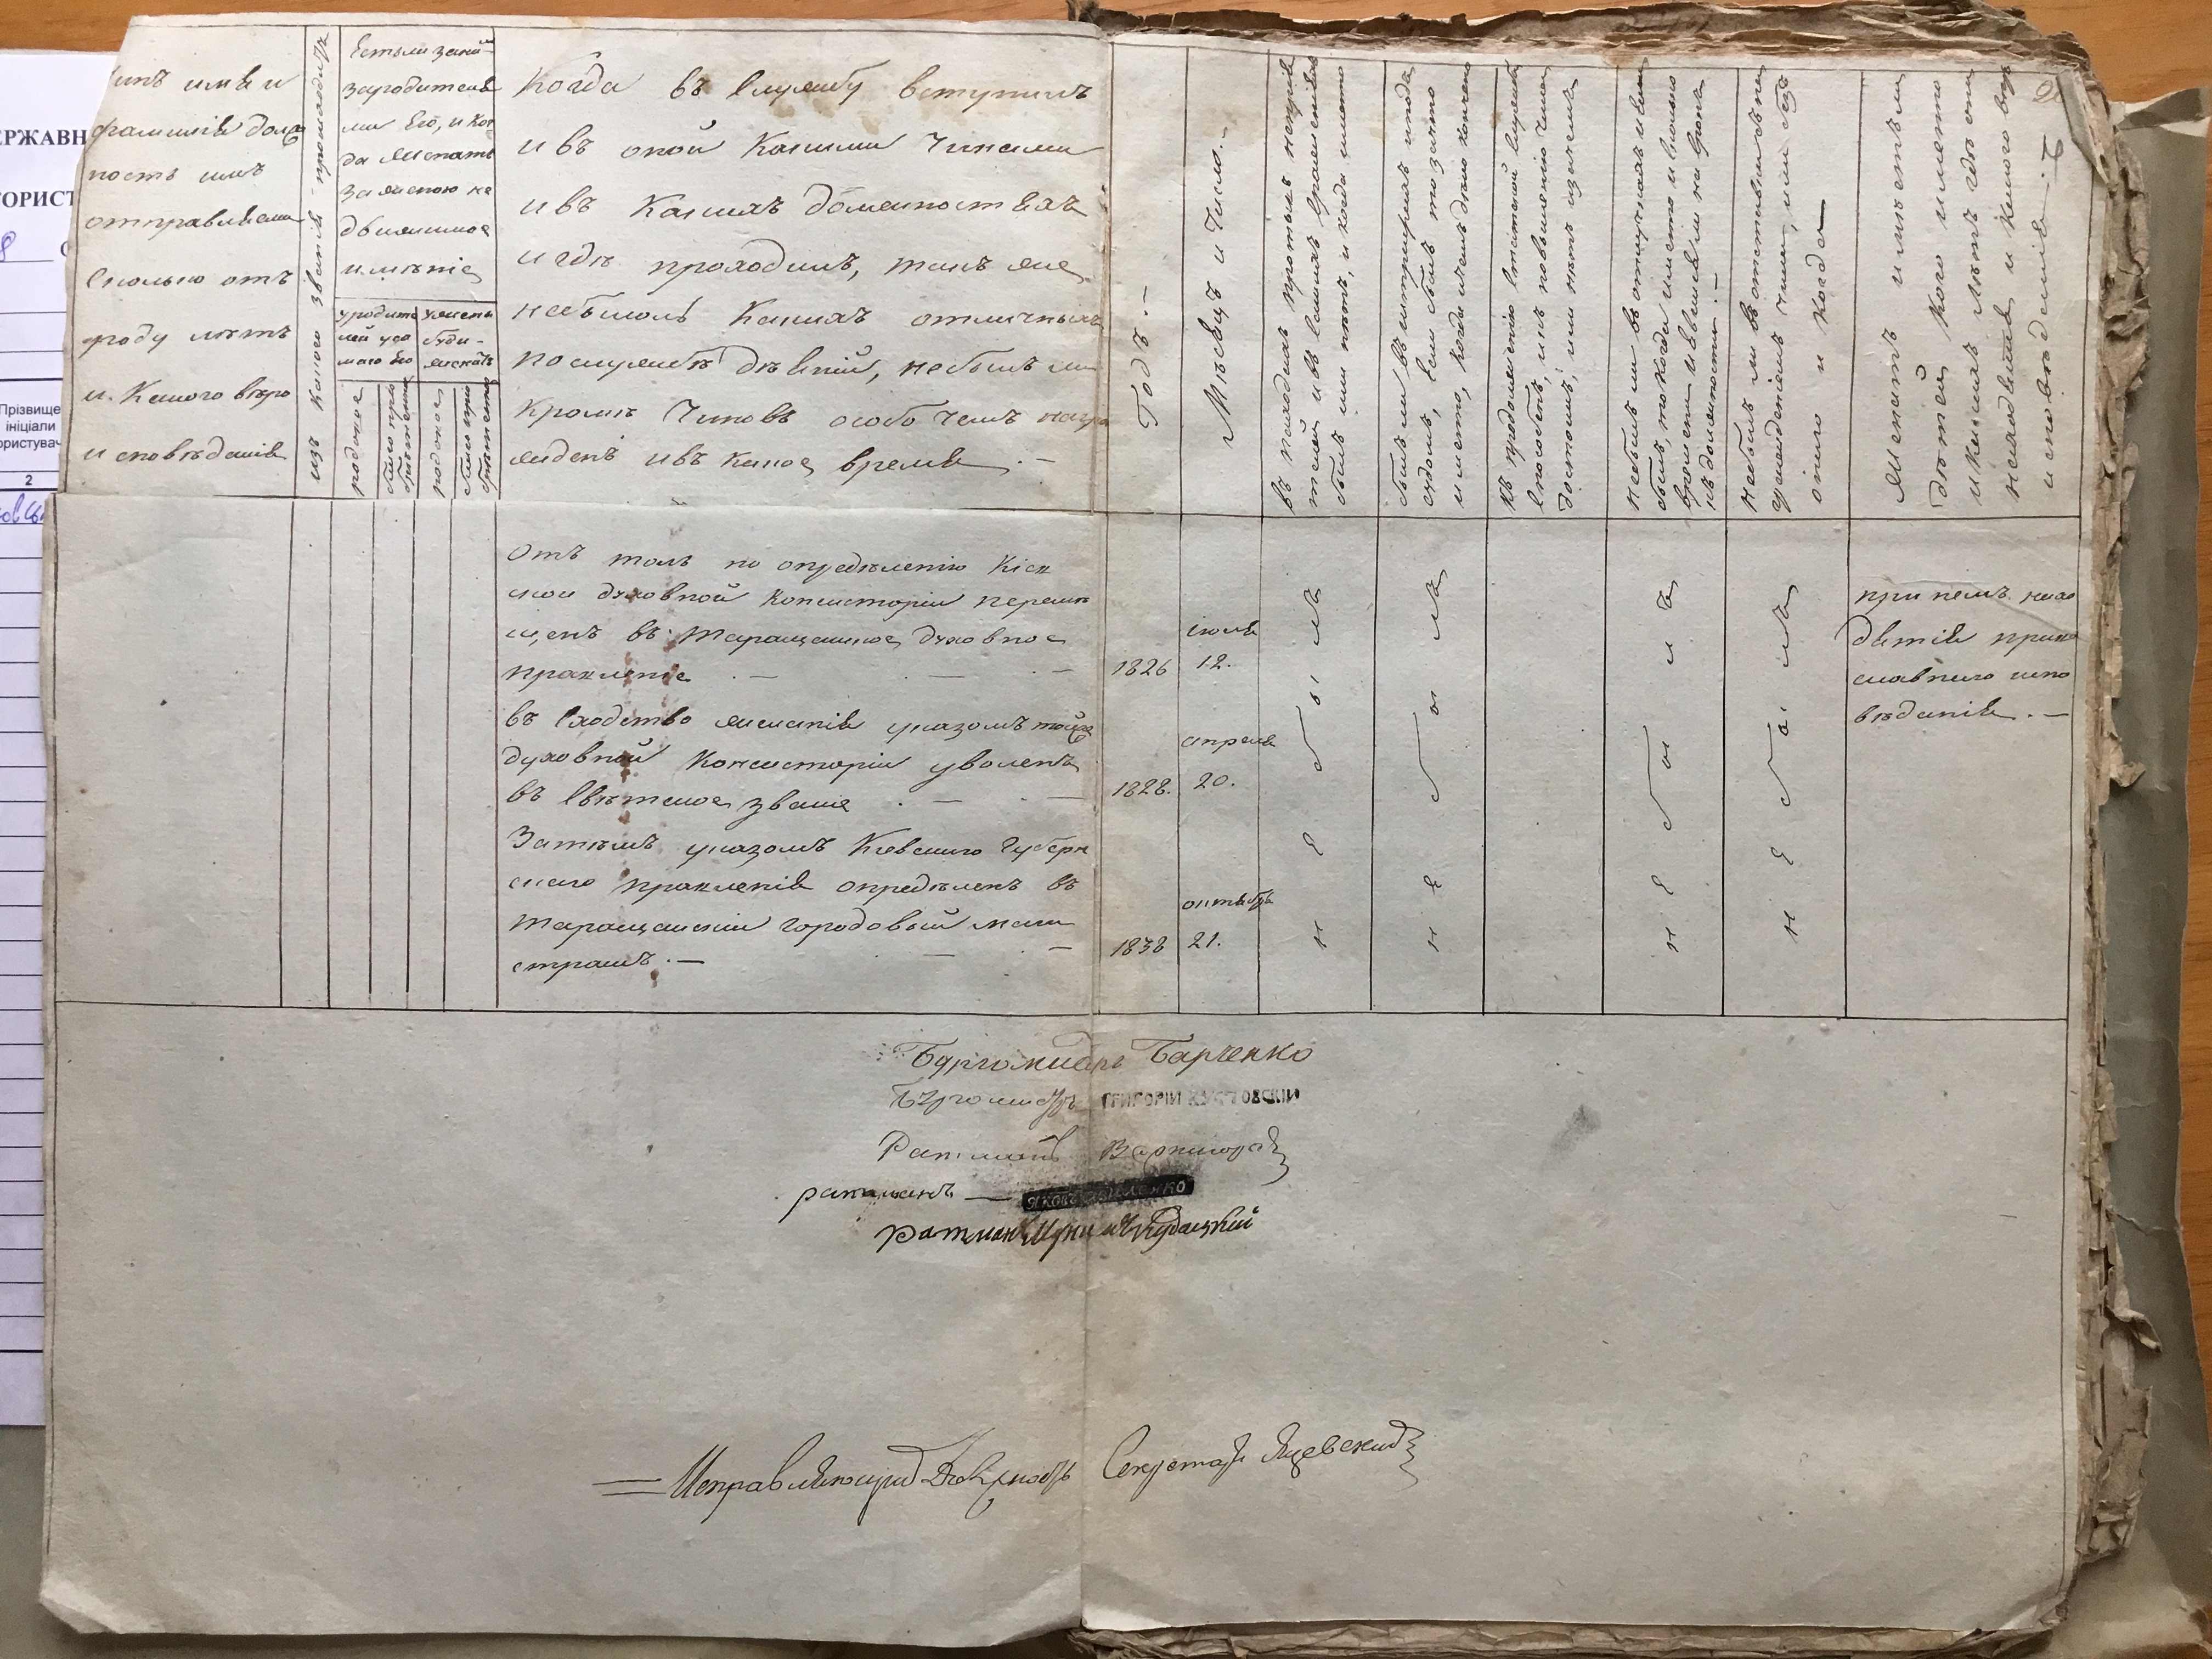 ЕРЖАВН
ТОРИСТ
Прізвище
ініціали
ористувач
2
имѣ и
фамилія долж
ность имъ
отправляемая
сколько отъ
роду лѣтъ
и какого вѣро
исповѣданія
изъ какого званія происходитъ
Естьли за нимъ
за родителя
ми его, и ког
да женатъ
за женою не
движимое
имѣніе
у родите
лей у са
маго его
у жены
буди
женатъ
родовое
благопрі
обрѣтенное
родовое
благопрі
обрѣтенное
Когда въ службу вступилъ
и въ оной какими чинами
и въ какихъ должностяхъ
и гдѣ проходилъ, такъ же
небылоль какихъ отличныхъ
по службѣ дѣяній, небылъ ли
кромѣ чиновъ особо чемъ награ
жденъ и въ какое время. —
Годъ. —
Мѣсяцъ и число. —
въ походахъ противъ непрія
теля и въ самыхъ сраженіяхъ
былъ или нѣтъ, и когда имянно
былъ ли въ штрафахъ и подъ
судомъ, если былъ то за что
имянно, когда и чемъ дѣло кончено
къ продолженію статской службы
способенъ, и къ повышенію чина
достоинъ, или нѣтъ и за чемъ
небылъ ли въ отпускахъ и если
былъ, то когда имянно и на сколько
времени и явился ли на срокъ
къ должности. —
небылъ ли въ отставкѣ съ на
гражденіемъ чина, или безъ
онаго и когда —
Женатъ и имѣетъ ли
дѣтей кого имянно
и какихъ лѣтъ гдѣ они
находятся и какого вѣро
исповѣданія. —
Отъ толь по опредѣленію Кіев
ской духовной консисторіи перемѣ
щенъ въ Таращанское духовное
правленіе . —
1826
іюля
12.
въ сходство желанія указомъ той же
духовной консисторіи уволенъ
въ свѣтское званіе . —
1828.
апреля
20.
Затѣмъ указомъ Кіевскаго Губерн
скаго правленія опредѣленъ въ
Таращанскій городовый маги
стратъ. —
1838
октября
21.
не былъ
не былъ
не былъ
не былъ
при немъ нахо
дятся право
славнаго испо
вѣданія. —
Бургомистръ Барченко
Бургомистръ ГРИГОРІЙ
Ратманъ
ратманъ — ЯКОВЪ
ратманъ
Исправляющій Должность Секретаря Яцевский